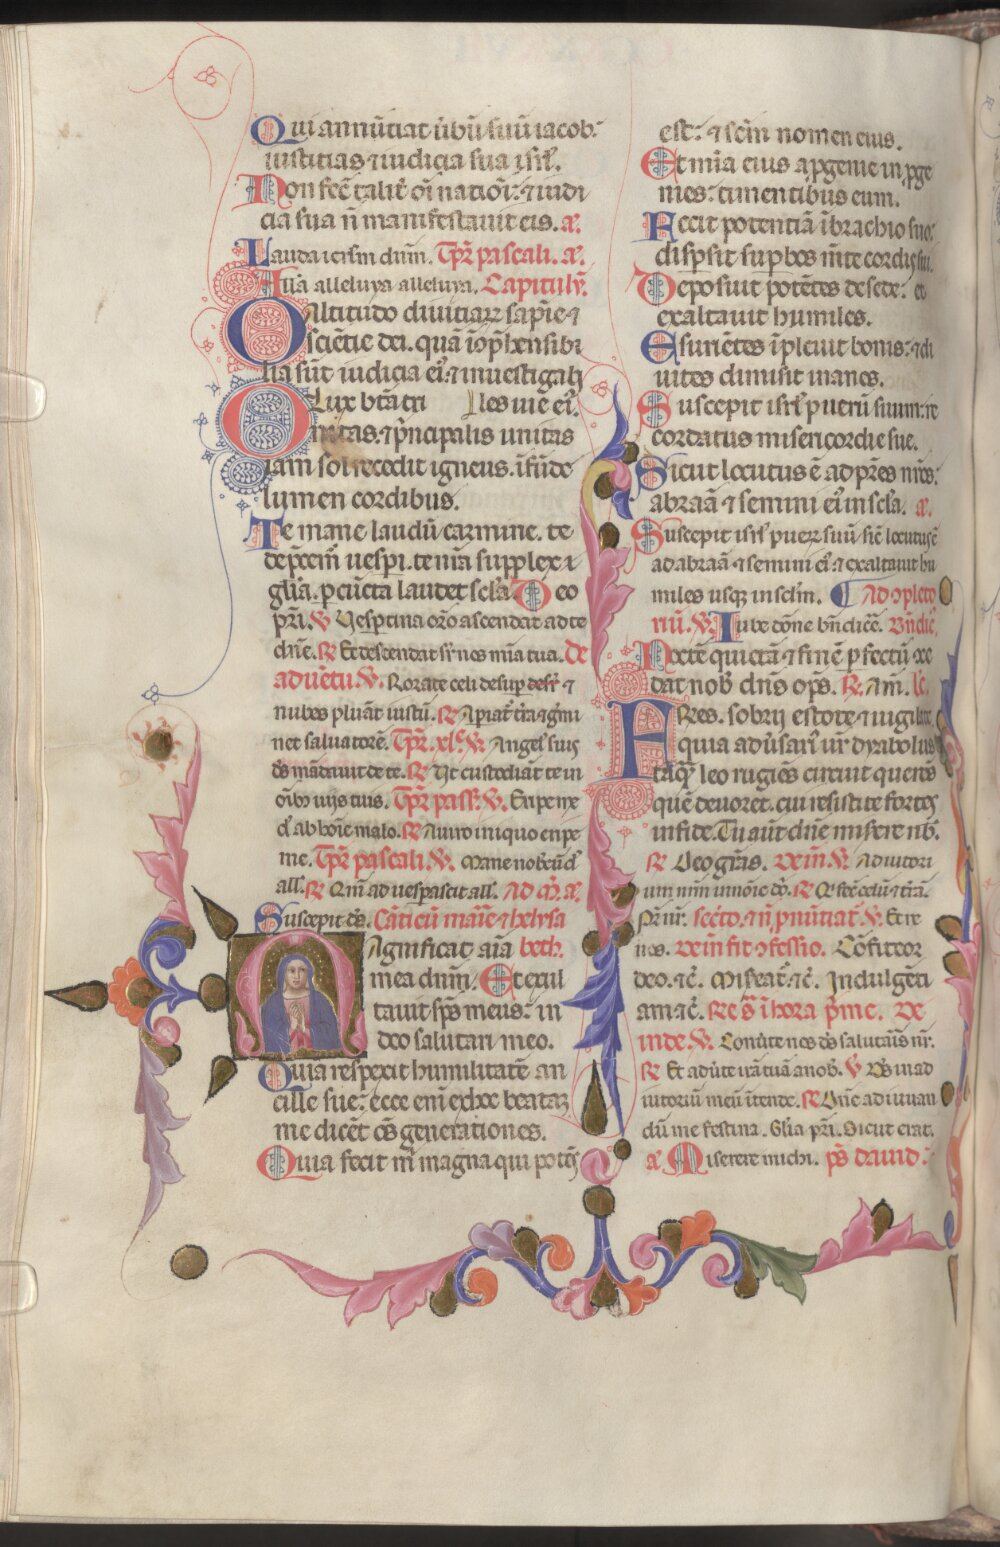 Qui annūtiat ūbū suū iacob:
iustitias ⁊ iudicia sua isrl̄.
Non fec̄ talit̄ oī natiōi: ⁊ iudi
cia sua n̄ manifestauit eis. a͞.
Lauda ierlm̄ dūm. Tpr̄ pascali. a͞.
Allā alleluya alleluya. Capitulū.
O altitudo diuitiaꝝ sapīe ⁊
scientie dei. quā īcōp̄hensibi
lia sūt iudicia eiꝰ: ⁊ inuestigab
O Lux bt̄a tri les uie eiꝰ.
nitas. ⁊ p̄ncipalis unitas
iam sol recedit igneus. īfūde
lumen cordibus.
Te mane laudū carmine. te
dep̄cem̄ uesp̄i. te nr̄a supplex
glīa. p cūcta laudet sc̄la. Deo
pr̄i. ℣ Uesp̄tina or̄o ascendat ad te
dn̄e. ℟ Et descendat sr̄ nos mīa tua. De
aduētu. ℣. Rorate celi desup̄ desr̄ ⁊
nubes pluāt iustū. ℟ Ap̄iat̄ tr̄a ⁊ gmi
net saluatorē. Tpr̄. xlᵉ. ℣. Angel' suis
ds̄ mādauit de te. ℟ Ut custodiāt te in
oīb; uijs tuis. Tpr̄ pass'. ℣. Eripe me
dē ab hoīe malo. ℟ A uiro iniquo eripe
me. Tpr̄ pascali. ℣. Mane nobcū dē
all'. ℟ Qm̄ aduesp̄ascit all'. Ad m̄. a͞.
Suscepit ds̄. Cāticū marīe ⁊ helysa
Magnificat aīa beth.
mea dnm̄. Et exul
tauit sps̄ meus: in
deo salutari meo.
Quia respexit humilitatē an
cille sue: ecce enī ex hoc beataꝫ
me dicēt os̄ generationes.
Quia fecit m̄ magna qui potēs
est: ⁊ sc̄m nomen eius.
Et mīa eius a ꝓgenie in ꝓge
nies: timentibus eum.
Fecit potentiā ī brachio suo:
disp̄sit sup̄bos m̄te cordis sui.
Deposuit potētes de sede: et
exaltauit humiles.
Esuriētes īpleuit bonis: ⁊ di
uites dimisit inanes.
Suscepit isrl̄ puerū suum: re
cordatus misericordie sue.
Sicut locutus ē ad pr̄es nr̄os:
abraā ⁊ semini eiꝰ in sc̄la. a͞.
Suscepit isrl̄ pueꝝ suū sic̄ locutus ē
ad abraā ⁊ semini eiꝰ: ⁊ exaltauit hu
miles usqꝫ in sc̄lm. ¶ Ad ɔpleto
riū. ℣. Iube dōne bn̄dicē. Bn̄dic̄.
Noctē quietā ⁊ finē pfectū ɔce
dat nob' dn̄s ops̄. ℟. Am̄. lc̄.
Fres. sobrij estote ⁊ uigilate.
quia adusariꝰ ur̄ dyabolus
tāqꝫ leo rugiēs circuit querēs
quē deuoret. cui resistite fortes
in fide. Tu aūt dn̄e miserē nb'.
℟ Deo grās. Dein ℣. Adiutori
um nrm̄ in noīe dn̄i. ℟ Qi fec̄ celū ⁊ tr̄ā.
Pr̄ nr̄. sec̄to. ⁊ n̄ pnūtiat̄ ℣. Et ne
nos. Dein fit ɔfessio. Cōfiteor
deo. ⁊c̄. Misereat̄. ⁊c̄. Indulgēti
am ⁊c̄. Re s̄ ī hora p̄me. De
inde. ℣. Conūte nos ds̄ salutaris nr̄.
℟ Et adūte irā tuā a nob'. ℣ Ds̄ in ad
iutoriū meū ītende. ℟ Dn̄e ad iuuan
dū me festina. Glīa pr̄i. Sicut erat.
a͞ Miserere michi. ps̄ dauid: